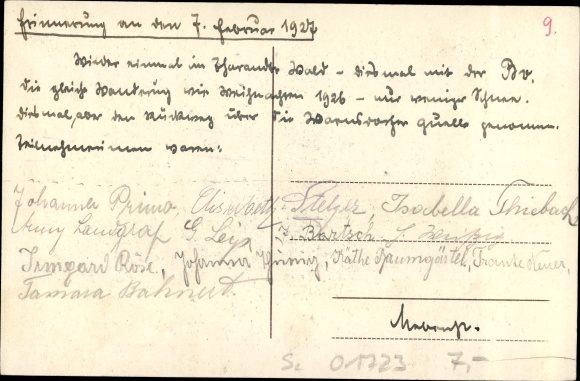 Erinnerung an den 7. Februar 1927
9.
Wieder einmal im Tharandter Wald – diesmal mit der Bv.
Die gleiche Wanderung wie Weihnachten 1926 – nur weniger Schnee.
diesmal, aber den Rückweg über die Warnsdorfer Quelle genommen.
Teilnehmerinnen waren:
Johanna Primo, Elisabeth Stelzer, Isabella Thiebach
Anny Landgraf G. Leip, Bartsch
Irmgard Röse, Johanna Hennig, Käthe Baumgärtel,
Tamara Bahnert
O 1723 7,-